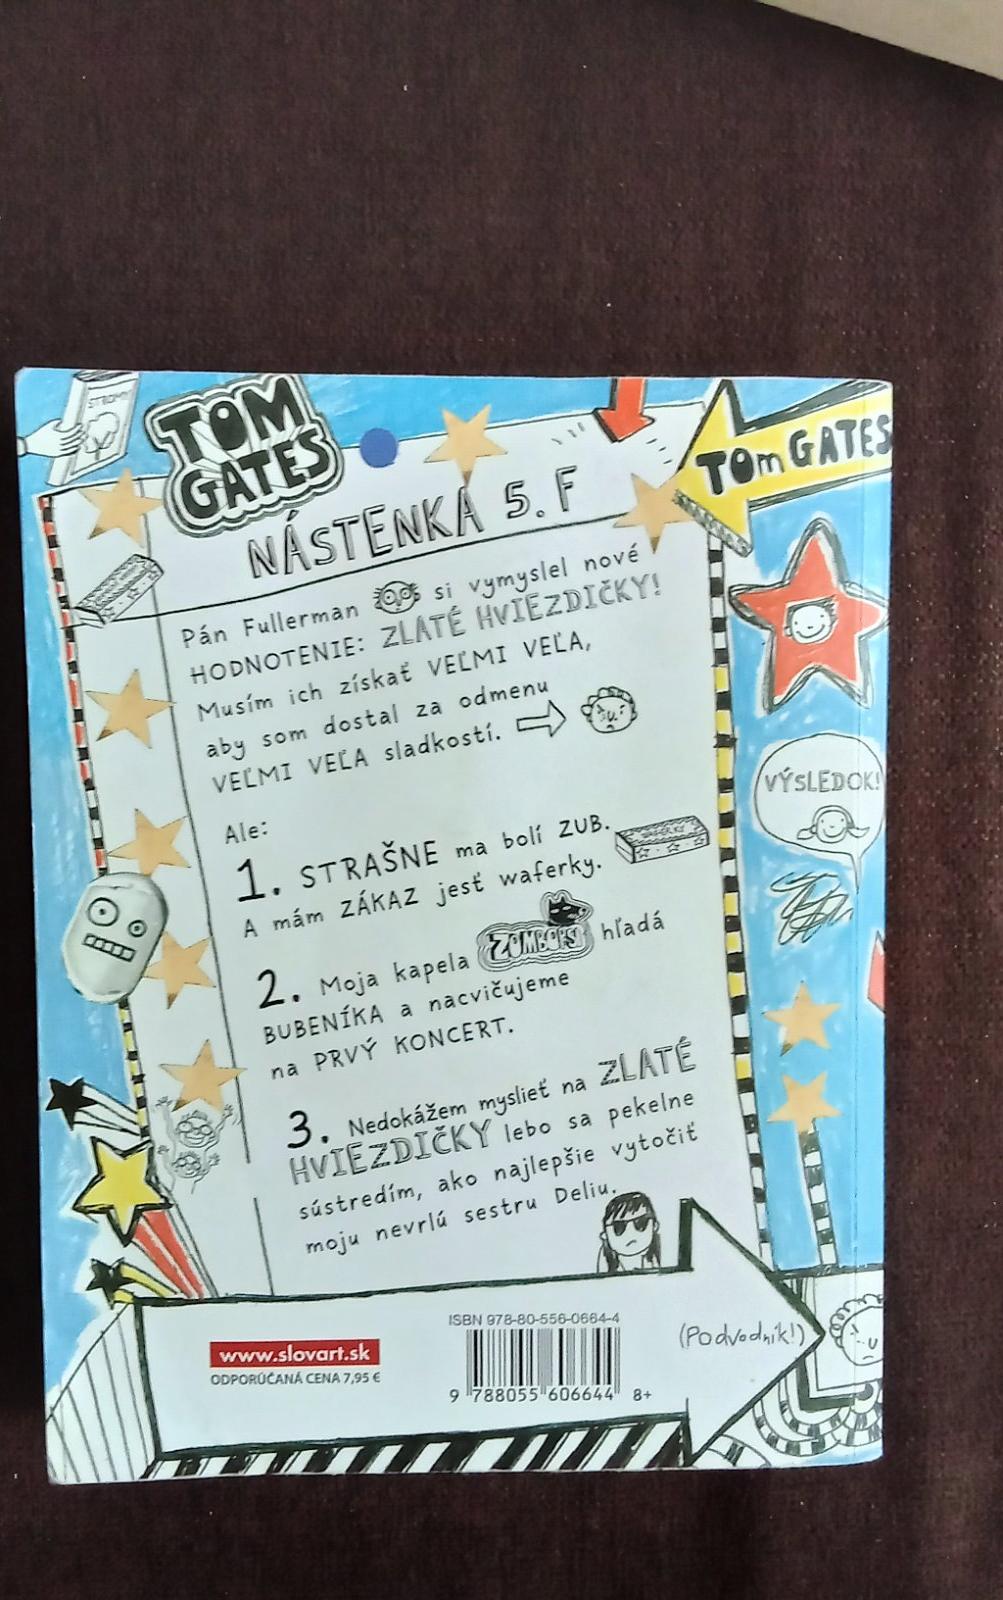 STROMY
TOM
GATES
TOM GATES
NÁSTENKA 5. F
Pán Fullerman si vymyslel nové
HODNOTENIE: ZLATÉ HVIEZDIČKY!
Musím ich získať VEĽMI VEĽA,
aby som dostal za odmenu
VEĽMI VEĽA sladkostí.
VÝSLEDOK!
Ale:
1. STRAŠNE ma bolí ZUB.
WAFERKY
A mám ZÁKAZ jesť waferky.
2. Moja kapela ZOMBOPSI hľadá
BUBENÍKA a nacvičujeme
na PRVÝ KONCERT.
3. Nedokážem myslieť na ZLATÉ
HVIEZDIČKY lebo sa pekelne
sústredím, ako najlepšie vytočiť
moju nevrlú sestru Deliu.
www.slovart.sk
ODPORÚČANÁ CENA 7,95 €
ISBN 978-80-556-0664-4
9 788055 606644 8+
(Podvodník!)